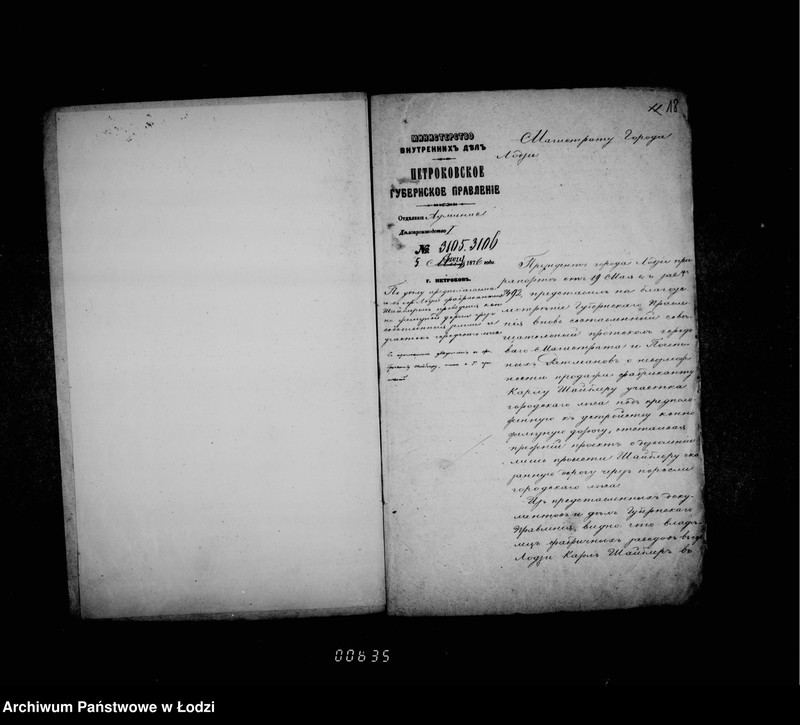 18
МИНИСТЕРСТВО
ВНУТРЕННИХЪ ДѢЛЪ
ПЕТРОКОВСКОЕ
ГУБЕРНСКОЕ ПРАВЛЕНІЕ
Отдѣленіе
Дѣлопроизводство I
№ 3105.3106
5 1876 года
Г. ПЕТРОКОВЪ.
По дѣлу
Шайблеромъ проведенія
дороги
участокъ
Магистрату Города
Лодзи
Президентъ города Лодзи при
рапортѣ отъ 19 Мая с. г. за №
3492, представилъ на благоус
мотрѣніе Губернскаго Правле
нія вновь составленный совѣ
щательный протоколъ городс
каго Магистрата и Почет
ныхъ о неудоб
ности продажи фабриканту
Карлу Шайблеру участка
городскаго лѣса подъ предполо
женную къ устройству конно
желѣзную дорогу, отстаивая
прежній проектъ о дозволеніи
лишь провести Шайблеру ска
занную дорогу чрезъ поросли
городскаго лѣса
Изъ представленныхъ доку
ментовъ и дѣлъ Губернскаго
Правленія, видно что владѣ
лецъ фабричныхъ заведеній въ г.
Лодзи Карлъ Шайблеръ въ
00635
Archiwum Państwowe w Łodzi